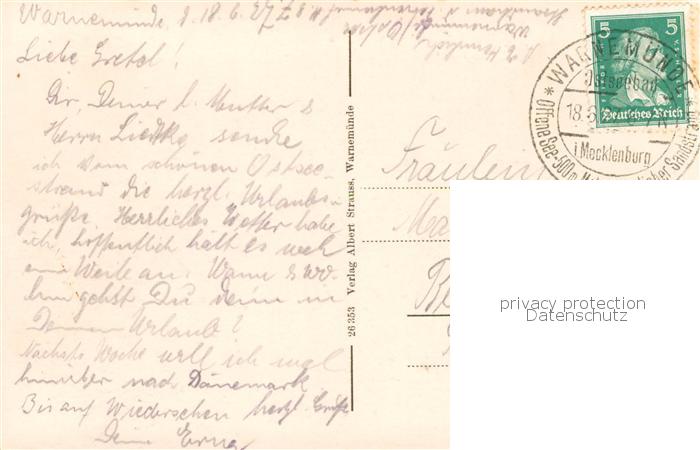 Warnemünde, d. 18.6.27
Liebe Gretel!
Dir, Deiner l. Mutter &
Herrn senke
ich vom schönen Ostsee-
strand die herzl. Urlaubs-
grüße. Herrliches Wetter habe
ich, hoffentlich hält es noch
eine Weile an. Wann & wo-
hin gehst Du denn in
Deinen Urlaub?
Nächste Woche will ich mal
hinüber nach Dänemark
Bis auf Wiedersehen herzl. Grüße
Deine Erna
26353 Verlag Albert Strauss, Warnemünde
Warnemünde/Ostsee
5 5
Deutsches Reich
* WARNEMÜNDE
Ostseebad
18.6
i Mecklenburg
Offene See-500m
Fräulein
Ma
privacy protection
Datenschutz